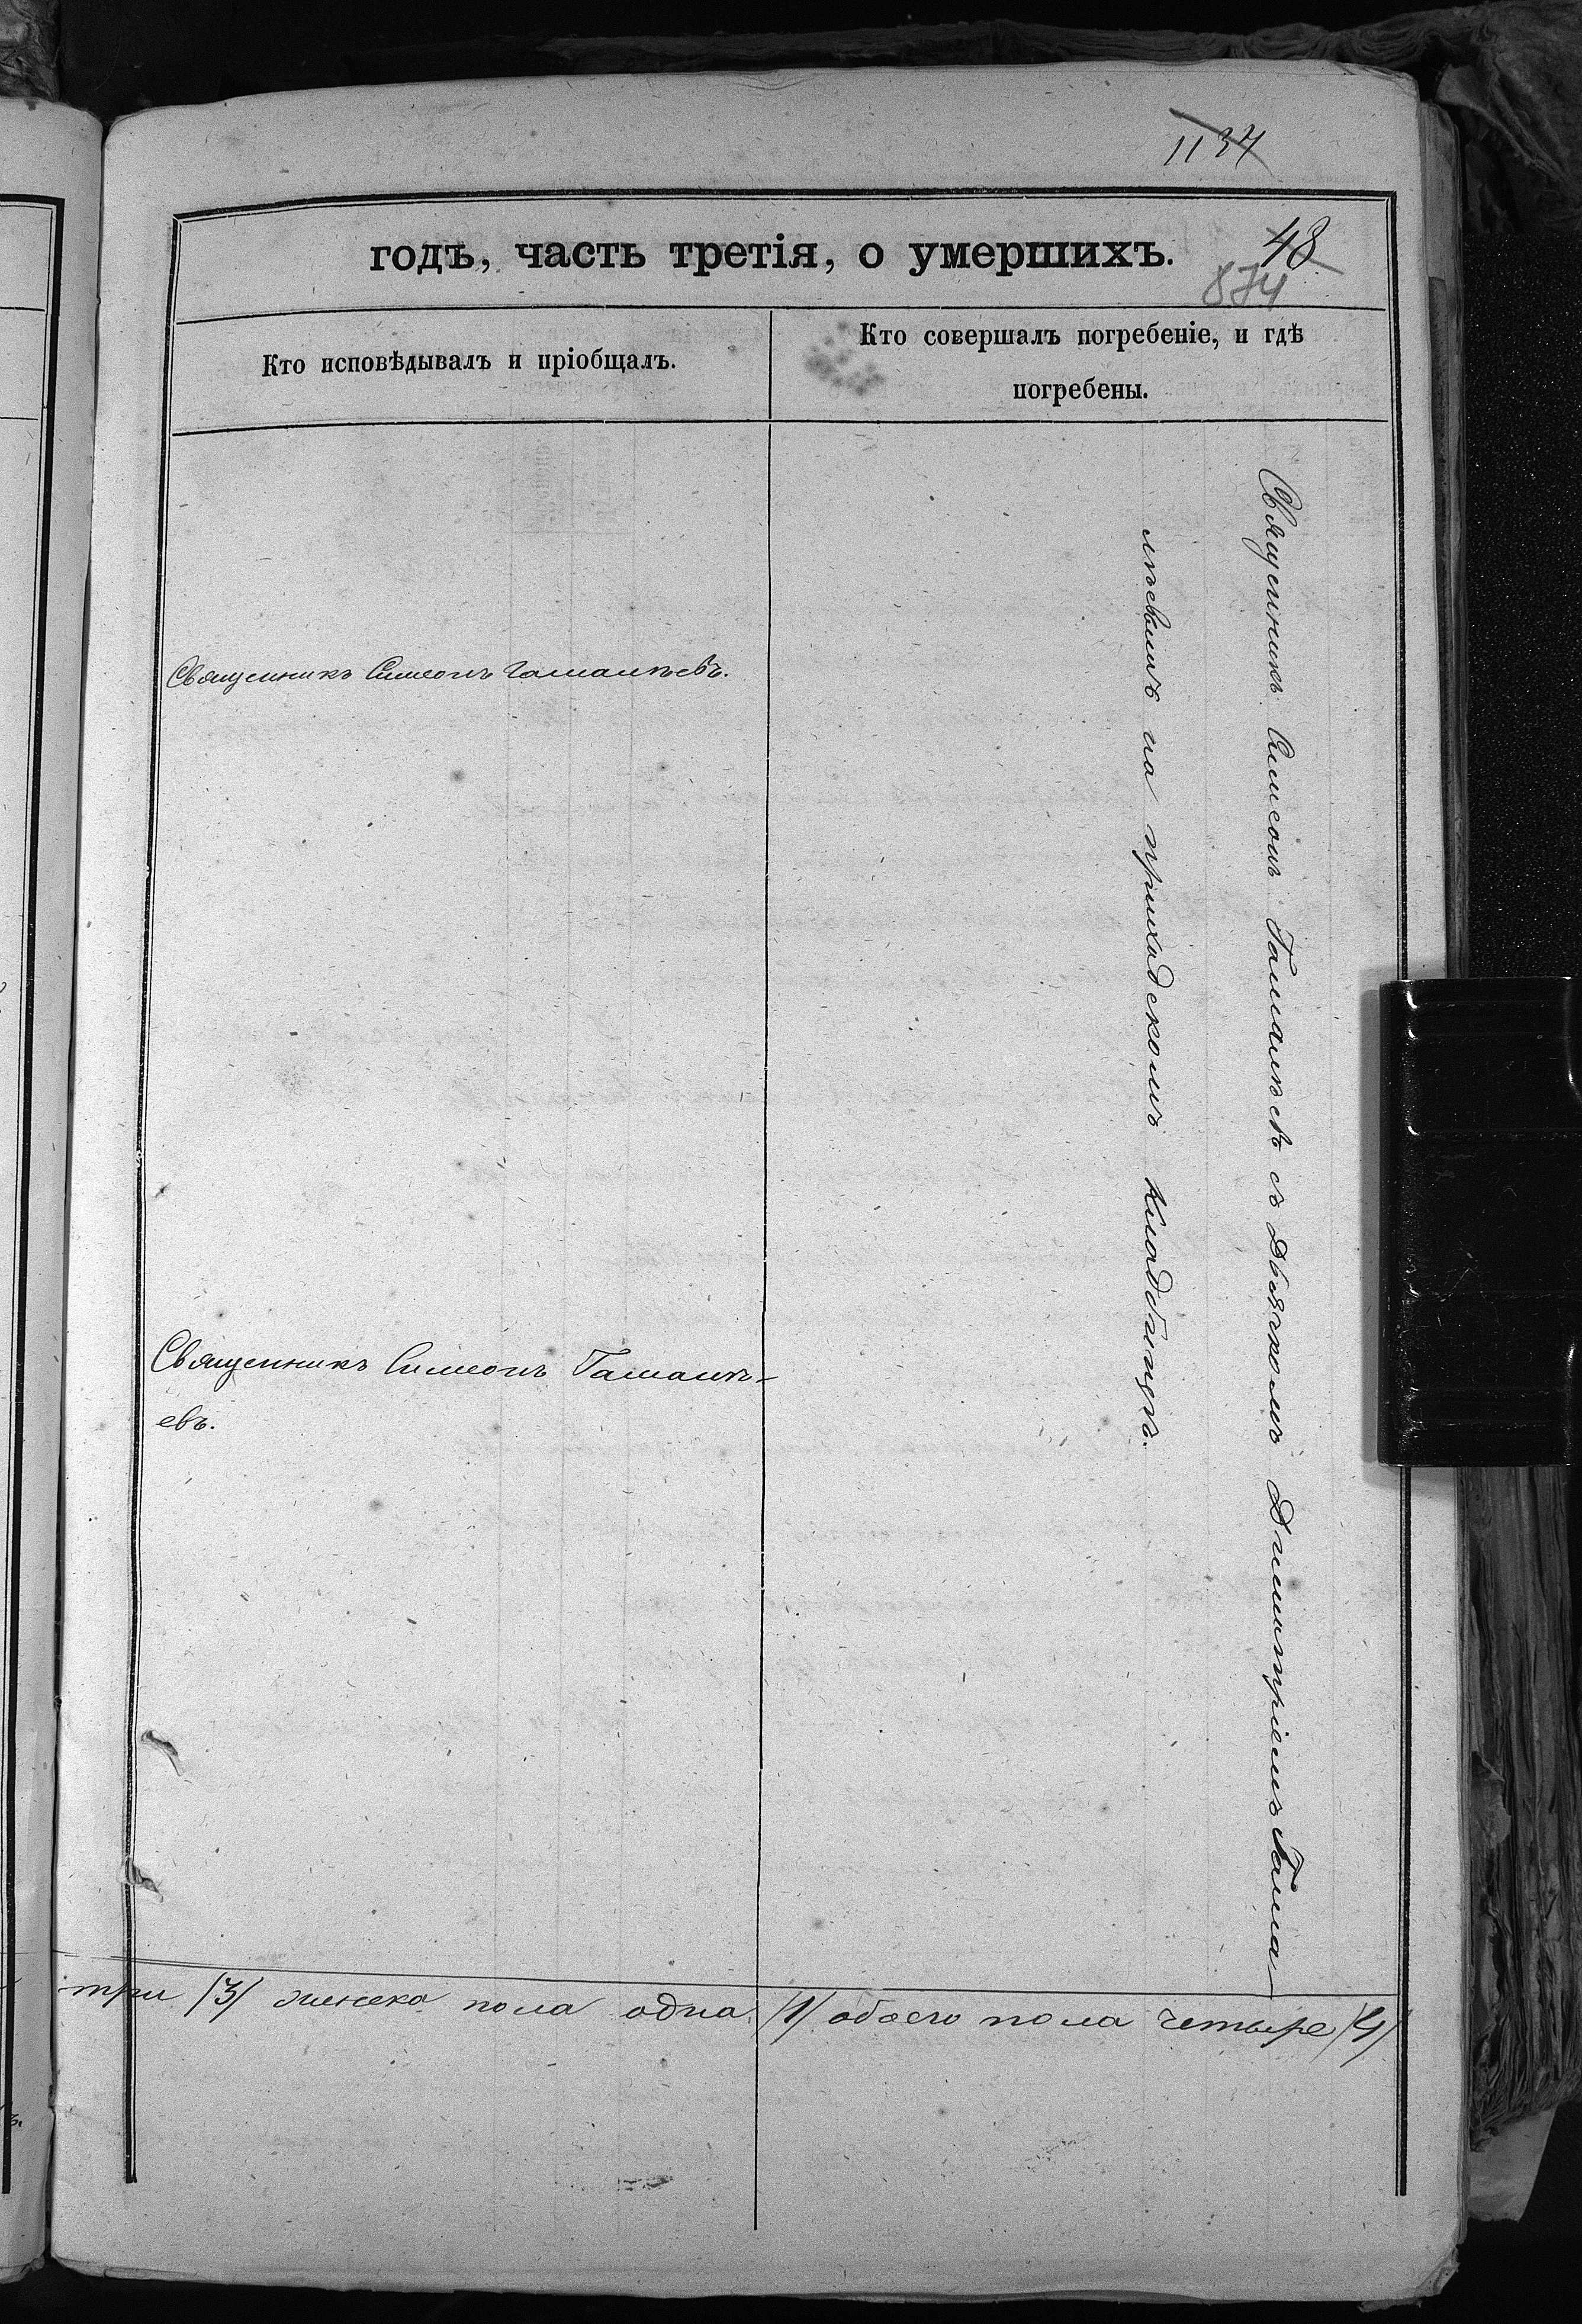 1134
годъ, часть третія, о умершихъ.
48
874
Кто исповѣдывалъ и пріобщалъ.
Кто совершалъ погребеніе, и гдѣ
погребены.
Священникъ Симеонъ Гамалѣевъ.
Священникъ Симеонъ Гамалѣ-
евъ.
Священникъ Симеонъ Гамалѣевъ съ Дьячкомъ Димитріемъ Гама-
лѣевымъ на приходскомъ кладбищѣ.
три /3/ женска пола одна /1/ обоего пола четыре /4/